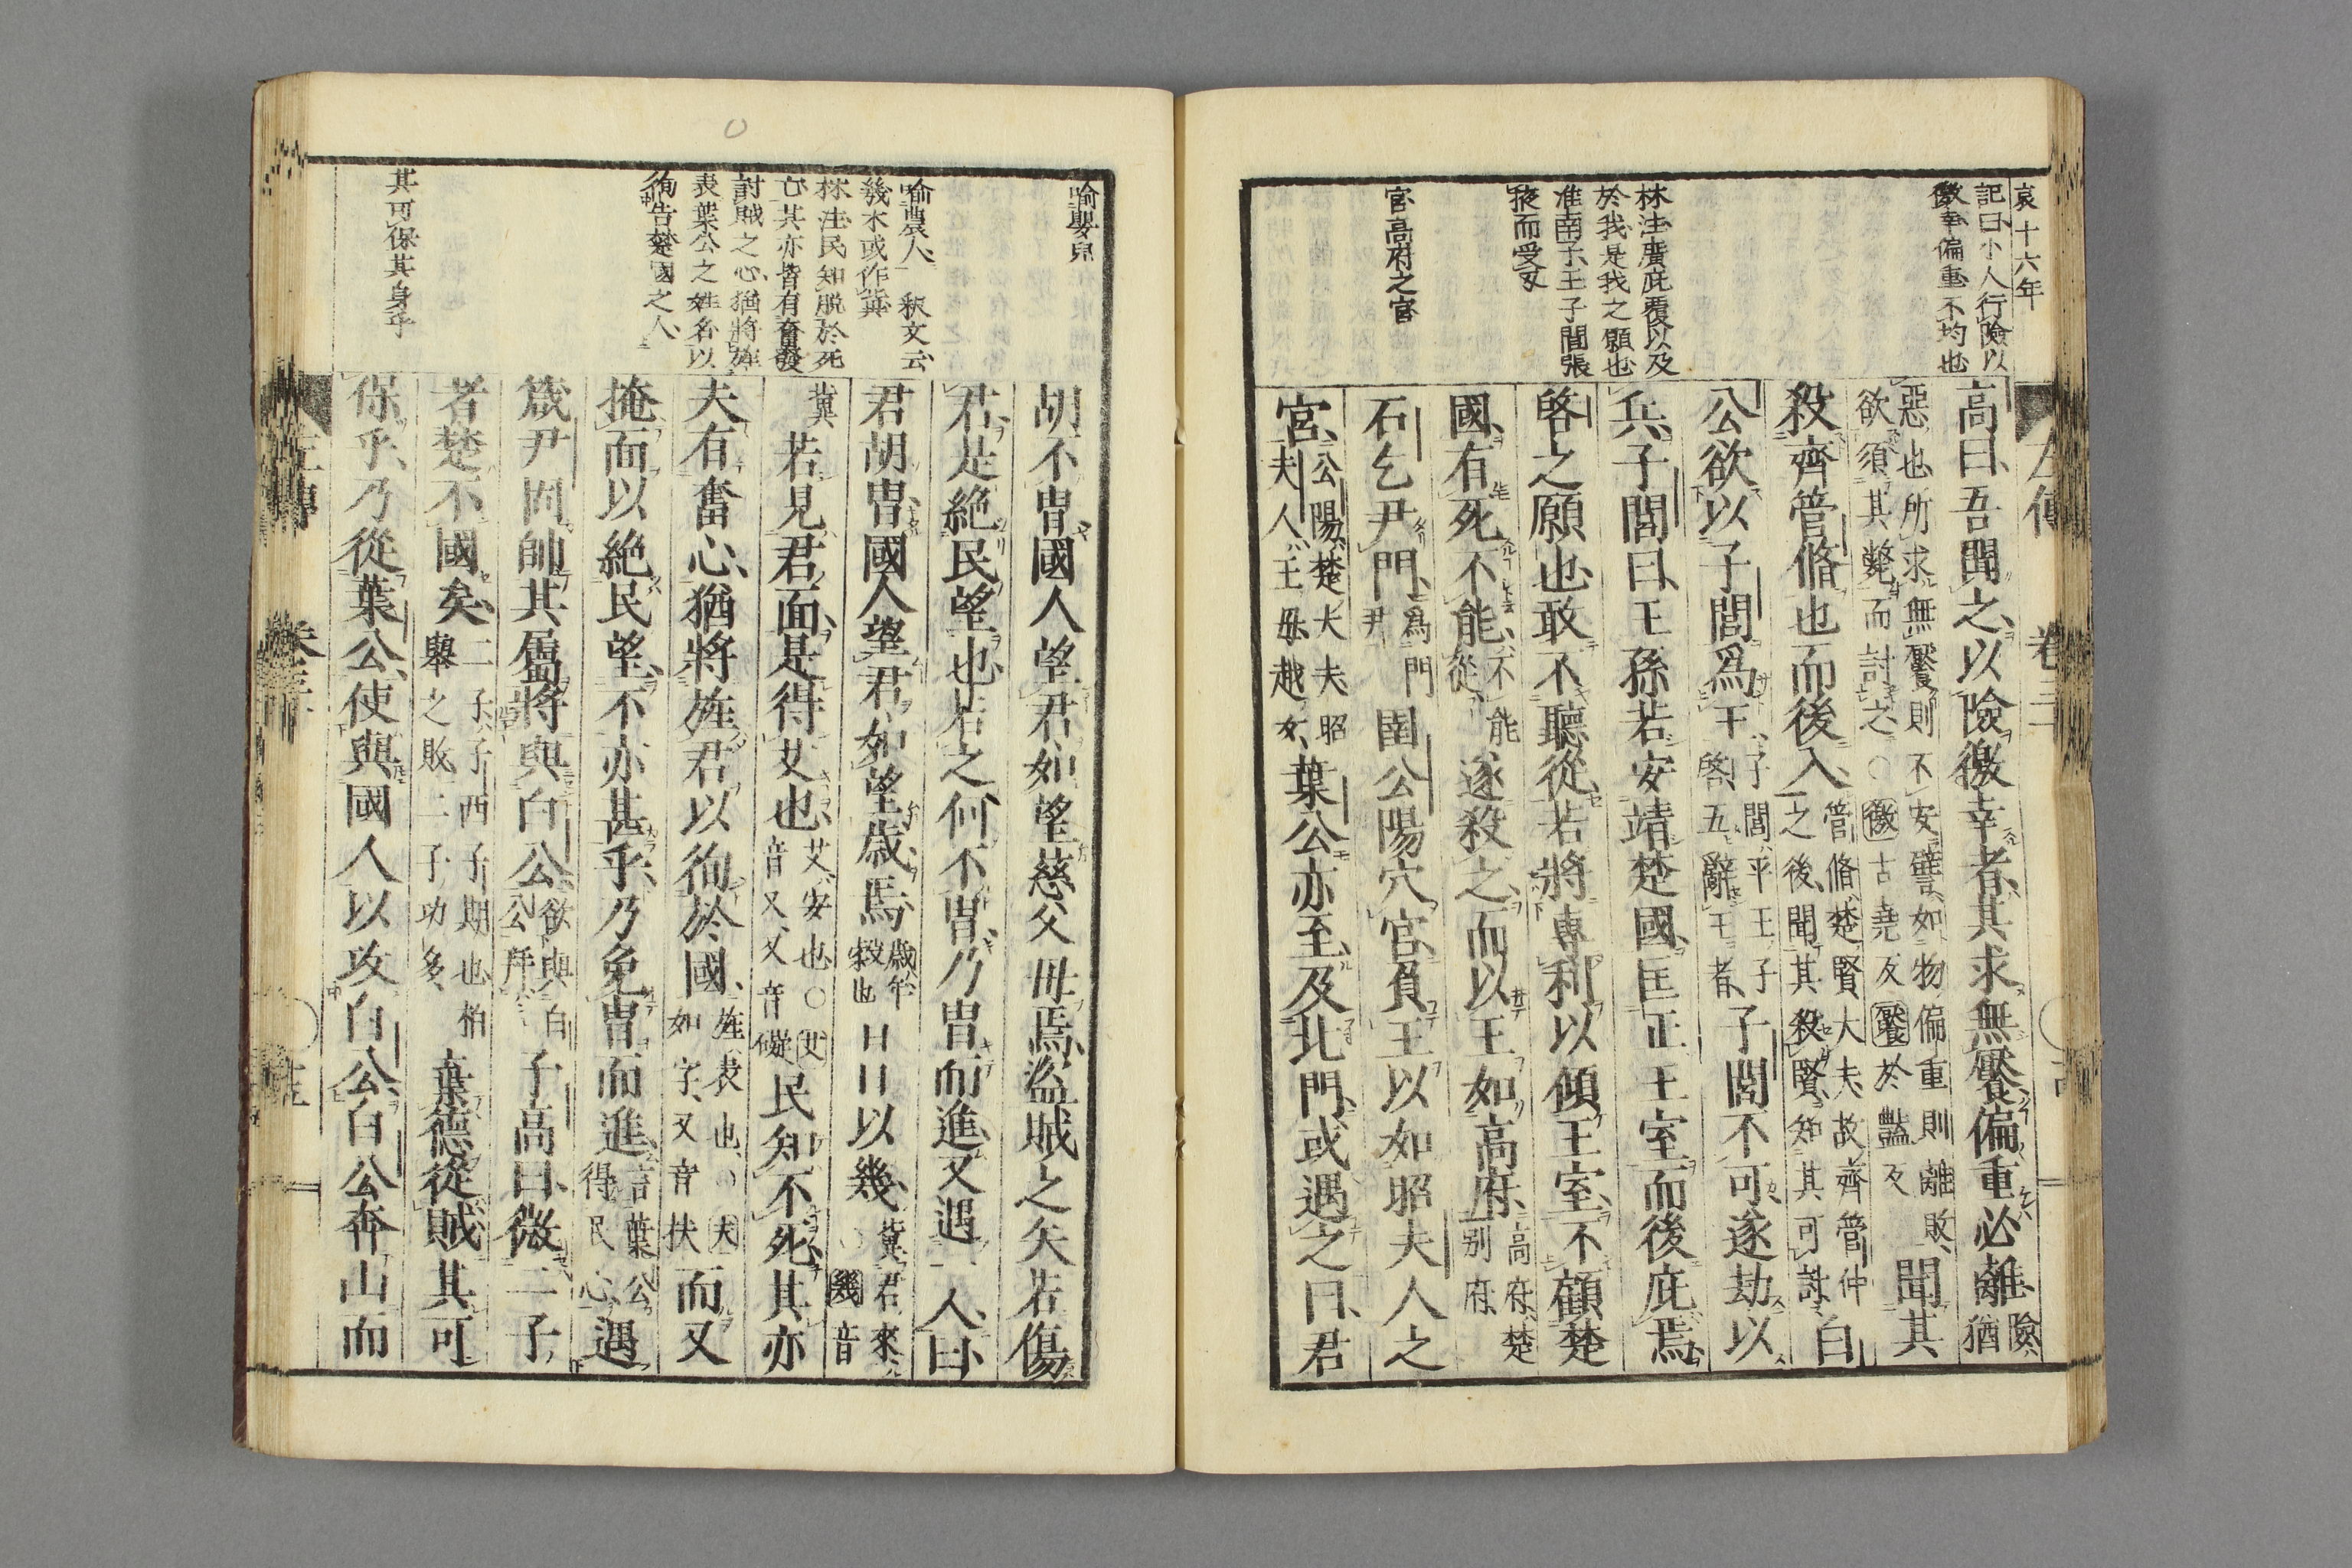 哀十六年
記曰小人行險以
徼幸偏重不均也
林注廣庇覆以及
於我是我之願也
淮南子王子閭張
掖而受刃
宮高府之宮
高曰吾聞之以險徼幸者其求無饜偏重必離險猶
惡也所求無饜則不安譬如物偏重則離敗
欲須其斃而討之○徼古堯反饜於豔反
聞其
殺齊管脩也而後入管脩楚賢大夫故齊管仲
之後聞其殺賢知其可討
白
公欲以子閭爲王子閭平王子
啓五辭王者
子閭不可遂劫以
兵子閭曰王孫若安靖楚國匡正王室而後庇焉
啓之願也敢不聽從若將專利以傾王室不顧楚
國有死不能不能
從
遂殺之而以王如高府高府楚
別府
石乞尹門爲門
尹
圉公陽穴宮負王以如昭夫人之
宮公陽楚大夫昭
夫人王母越女
葉公亦至及北門或遇之曰君
左傳 卷三十
喻嬰兒
喻農人 釈文云
幾本或作冀
林注民知脫於死
亡其亦皆有奮發
討賊之心猶將旌
表葉公之姓名以
徇告楚國之人
其可保其身乎
胡不冑國人望君如望慈父母焉盜賊之矢若傷
君是絕民望也若之何不冑乃冑而進又遇一人曰
君胡冑國人望君如望歲焉歲年
穀也
日日以幾冀君來
○幾音
冀
若見君面是得艾也艾安也○艾
音又又音礙
民知不死其亦
夫有奮心猶將旌君以徇於國旌表也○夫
如字又音扶
而又
掩面以絕民望不亦甚乎乃免冑而進言葉公
得民心
遇
箴尹固帥其屬將與白公欲與白
公幷
子高曰微二子
者楚不國矣二子子西子期也柏
舉之敗二子功多
棄德從賊其可
保乎乃從葉公使與國人以攻白公白公奔山而